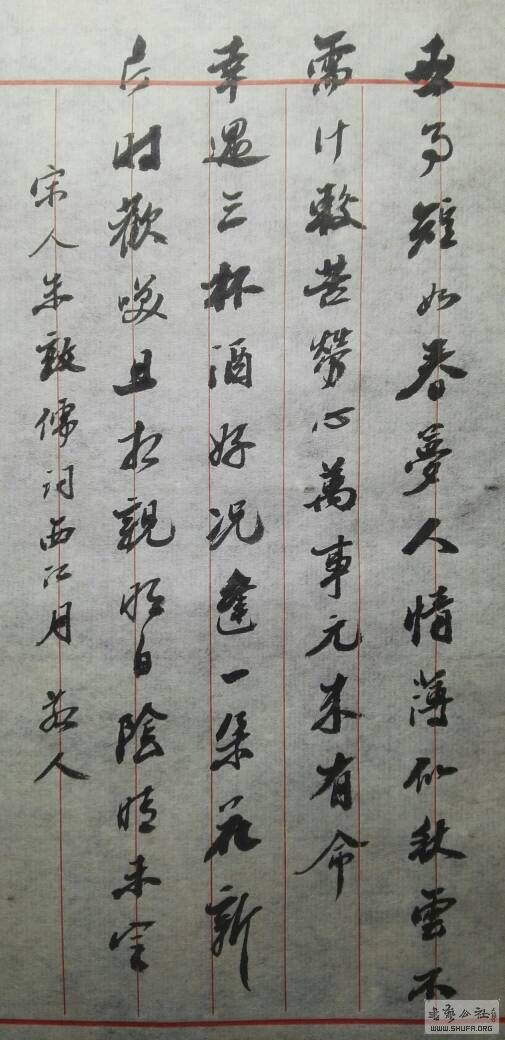 世事短如春夢人情薄似秋雲不
需計較苦勞心萬事元来有命
幸遇三杯酒好況逢一朵花新
片時歡咲且相親明日陰晴未定
宋人朱敦儒詞西江月 人
書藝公社
WWW.SHUFA.ORG